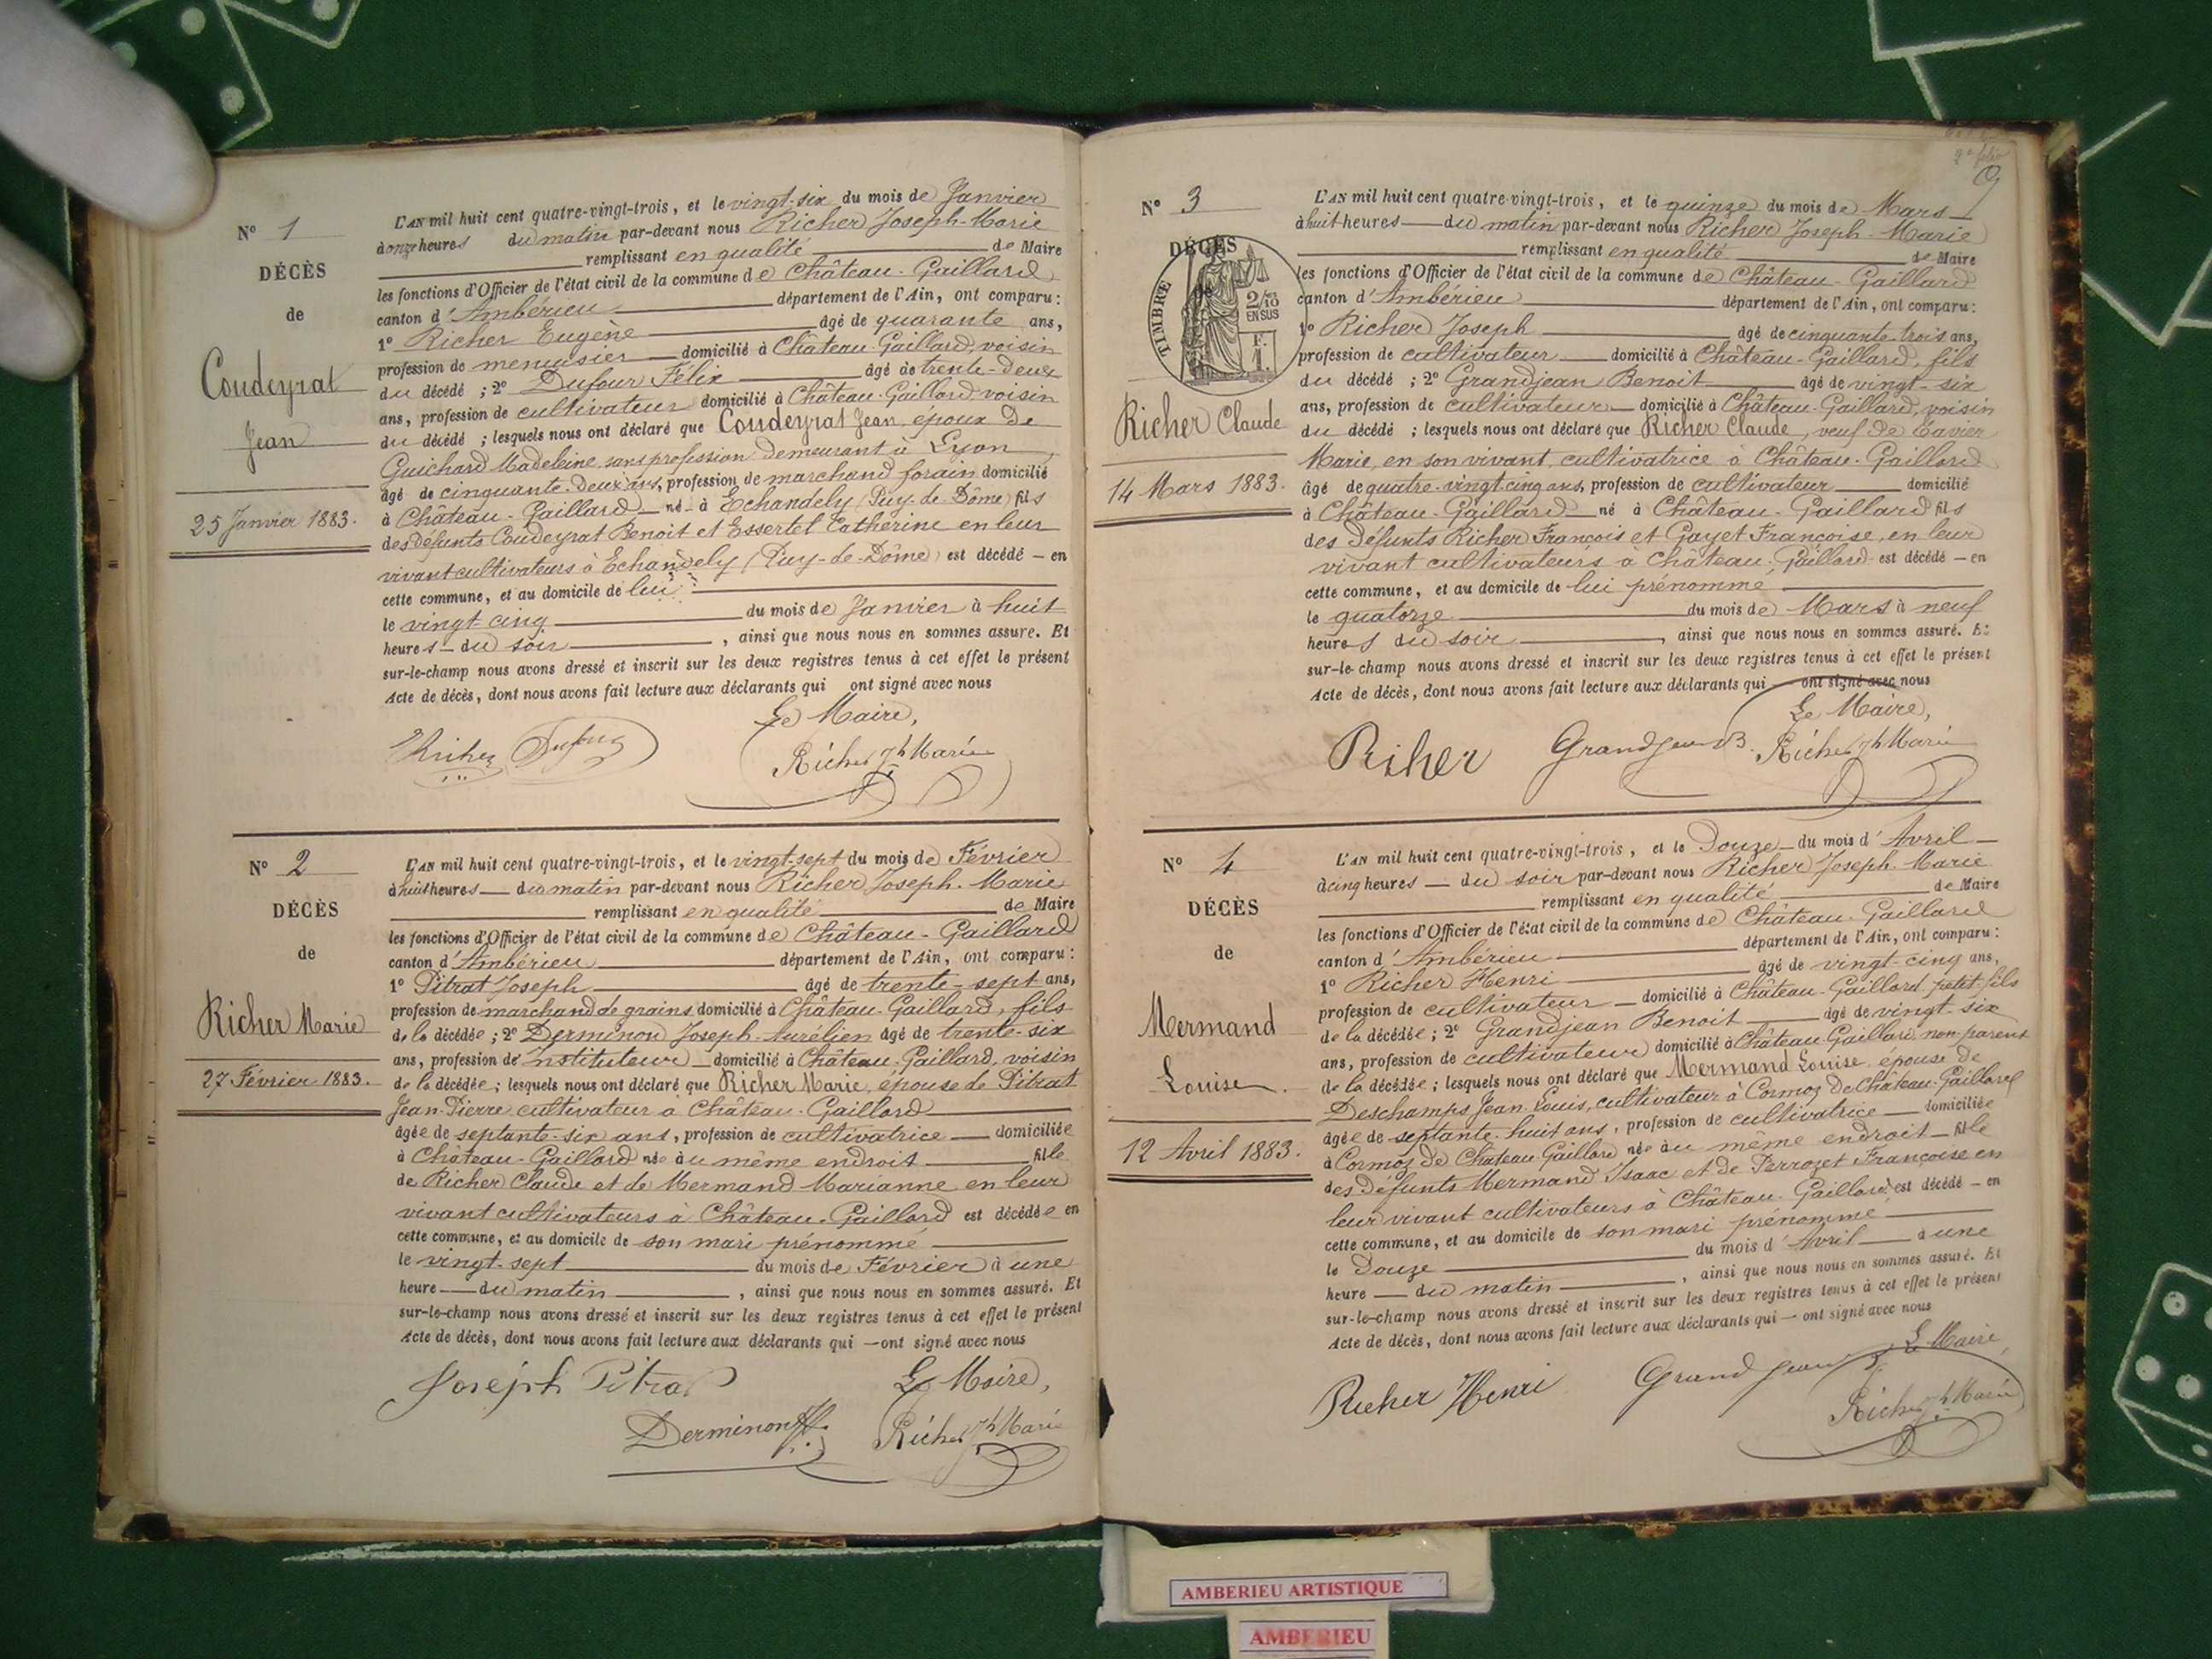 N° 1
DÉCÈS
de
Coudeyrat
Jean
25 Janvier 1883.
L'AN mil huit cent quatre-vingt-trois, et le vingt-six du mois de Janvier
à onze heures du matin par-devant nous Richer Joseph-Marie
remplissant en qualité de Maire
les fonctions d'Officier de l'état civil de la commune de Château-Gaillard
canton d'Ambérieu département de l'Ain, ont comparu :
1° Richer Eugène âgé de quarante ans,
profession de menuisier domicilié à Château-Gaillard, voisin
du décédé ; 2° Dufour Félix âgé de trente-deux
ans, profession de cultivateur domicilié à Château-Gaillard voisin
du décédé ; lesquels nous ont déclaré que Coudeyrat Jean, époux de
Guichard Madeleine, sans profession demeurant à Lyon,
âgé de cinquante-deux ans, profession de marchand forain domicilié
à Château-Gaillard né à Echandely (Puy-de-Dôme) fils
des défunts Coudeyrat Benoit et Essertel Catherine en leur
vivant cultivateurs à Echandely (Puy-de-Dôme) est décédé en
cette commune, et au domicile de lui
le vingt-cinq du mois de Janvier à huit
heures du soir, ainsi que nous nous en sommes assuré. Et
sur-le-champ nous avons dressé et inscrit sur les deux registres tenus à cet effet le présent
Acte de décès, dont nous avons fait lecture aux déclarants qui ont signé avec nous
Le Maire,
Richer Dufour Richer Jh Marie
N° 2
DÉCÈS
de
Richer Marie
27 Février 1883.
L'AN mil huit cent quatre-vingt-trois, et le vingt-sept du mois de Février
à huit heures du matin par-devant nous Richer Joseph-Marie
remplissant en qualité de Maire
les fonctions d'Officier de l'état civil de la commune de Château-Gaillard
canton d'Ambérieu département de l'Ain, ont comparu :
1° Pitrat Joseph âgé de trente-sept ans,
profession de marchand de grains domicilié à Château-Gaillard, fils
de la décédée ; 2° Derminon Joseph-Aurélien âgé de trente-six
ans, profession de Instituteur domicilié à Château-Gaillard, voisin
de la décédée ; lesquels nous ont déclaré que Richer Marie, épouse de Pitrat
Jean-Pierre, cultivateur à Château-Gaillard
âgée de septante-six ans, profession de cultivatrice domiciliée
à Château-Gaillard née au même endroit fille
de Richer Claude et de Mermand Marianne en leur
vivant cultivateurs à Château-Gaillard est décédée en
cette commune, et au domicile de son mari prénommé
le vingt-sept du mois de Février à une
heure du matin, ainsi que nous nous en sommes assuré. Et
sur-le-champ nous avons dressé et inscrit sur les deux registres tenus à cet effet le présent
Acte de décès, dont nous avons fait lecture aux déclarants qui ont signé avec nous
Joseph Pitrat Le Maire,
Derminon Richer Jh Marie
2e folio
N° 3
DÉCÈS
TIMBRE
2/10
EN SUS
F.
1.
Richer Claude
14 Mars 1883.
L'AN mil huit cent quatre-vingt-trois, et le quinze du mois de Mars
à huit heures du matin par-devant nous Richer Joseph-Marie
remplissant en qualité de Maire
les fonctions d'Officier de l'état civil de la commune de Château-Gaillard
canton d'Ambérieu département de l'Ain, ont comparu :
1° Richer Joseph âgé de cinquante-trois ans,
profession de cultivateur domicilié à Château-Gaillard, fils
du décédé ; 2° Grandjean Benoit âgé de vingt-six
ans, profession de cultivateur domicilié à Château-Gaillard, voisin
du décédé ; lesquels nous ont déclaré que Richer Claude, veuf de Cavier
Marie, en son vivant cultivatrice à Château-Gaillard
âgé de quatre-vingt-cinq ans, profession de cultivateur domicilié
à Château-Gaillard né à Château-Gaillard fils
des défunts Richer François et Gayet Françoise, en leur
vivant cultivateurs à Château-Gaillard est décédé en
cette commune, et au domicile de lui prénommé
le quatorze du mois de Mars à neuf
heures du soir, ainsi que nous nous en sommes assuré. Et
sur-le-champ nous avons dressé et inscrit sur les deux registres tenus à cet effet le présent
Acte de décès, dont nous avons fait lecture aux déclarants qui ont signé avec nous
Le Maire,
Riher Grandjean B. Richer Jh Marie
N° 4
DÉCÈS
de
Mermand
Louise.
12 Avril 1883.
L'AN mil huit cent quatre-vingt-trois, et le Douze du mois d'Avril
à cinq heures du soir par-devant nous Richer Joseph-Marie
remplissant en qualité de Maire
les fonctions d'Officier de l'état civil de la commune de Château-Gaillard
canton d'Ambérieu département de l'Ain, ont comparu :
1° Richer Henri âgé de vingt-cinq ans,
profession de cultivateur domicilié à Château-Gaillard, petit-fils
de la décédée ; 2° Grandjean Benoit âgé de vingt-six
ans, profession de cultivateur domicilié à Château-Gaillard, non parent
de la décédée ; lesquels nous ont déclaré que Mermand Louise, épouse de
Deschamps Jean-Louis, cultivateur à Cormoz de Château-Gaillard
âgée de septante-huit ans, profession de cultivatrice domiciliée
à Cormoz de Château-Gaillard née au même endroit fille
des défunts Mermand Isaac et de Perrozet Françoise en
leur vivant cultivateurs à Château-Gaillard est décédé en
cette commune, et au domicile de son mari prénommé
le Douze du mois d'Avril à une
heure du matin, ainsi que nous nous en sommes assuré. Et
sur-le-champ nous avons dressé et inscrit sur les deux registres tenus à cet effet le présent
Acte de décès, dont nous avons fait lecture aux déclarants qui ont signé avec nous
Le Maire,
Richer Henri Grandjean Richer Jh Marie
AMBERIEU ARTISTIQUE
AMBERIEU